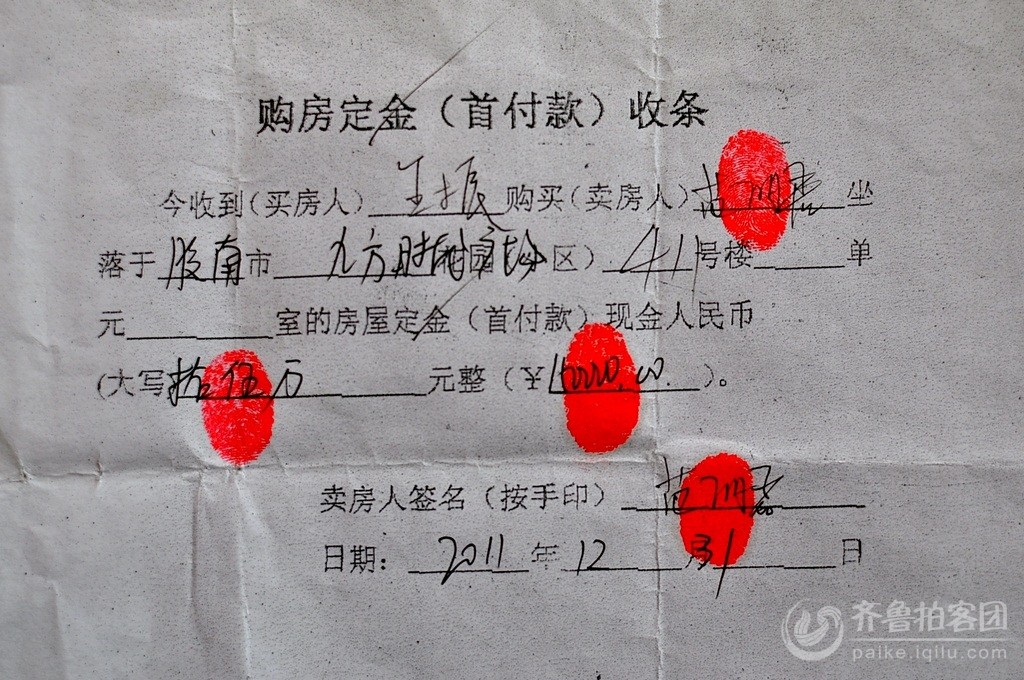 购房定金（首付款）收条
今收到（买房人）王振 购买（卖房人）范 坐
落于胶南市 九方 区）41号楼 单
元 室的房屋定金（首付款）现金人民币
(大写拾伍万 元整（¥150000.00.）。
卖房人签名（按手印）范
日期：2011年12月31日
齐鲁拍客团
paike.iqilu.com